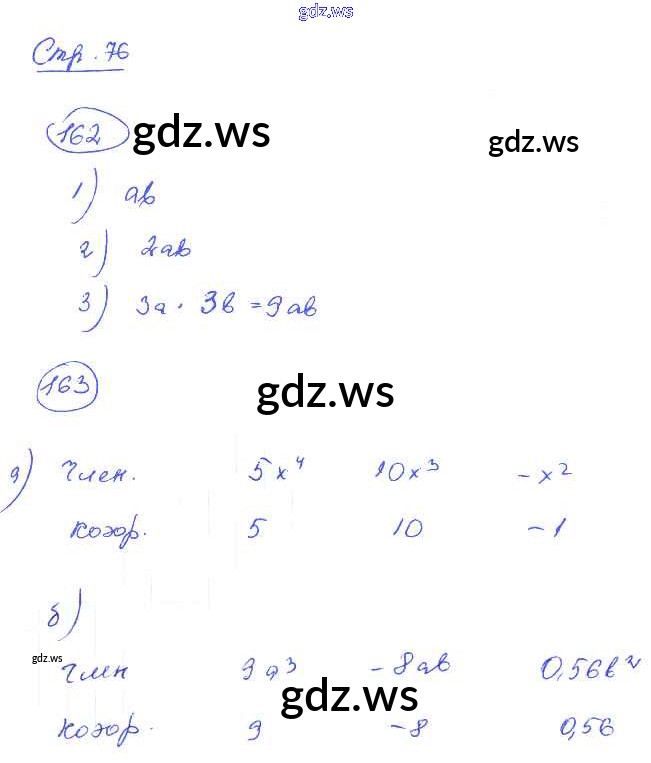 gdz.ws
Стр. 76
162 gdz.ws gdz.ws
1) ab
2) 2ab
3) 3a · 3b = 9ab
163 gdz.ws
a) Член. 5x⁴ 10x³ -x²
коэф. 5 10 -1
б)
gdz.ws
Член 9a³ -8ab 0,56b²
gdz.ws
коэф. 9 -8 0,56